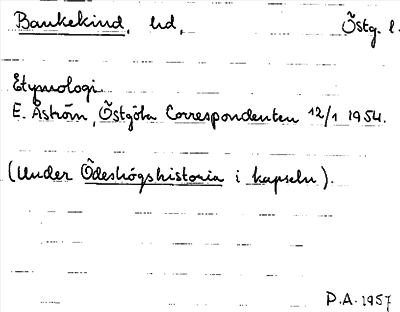 Bankekind, hd, Östg. l.
Etymologi
E. Åström, Östgöta Correspondenten 12/1 1954.
(Under Ödeshögshistoria i kapseln).
P.A. 1957